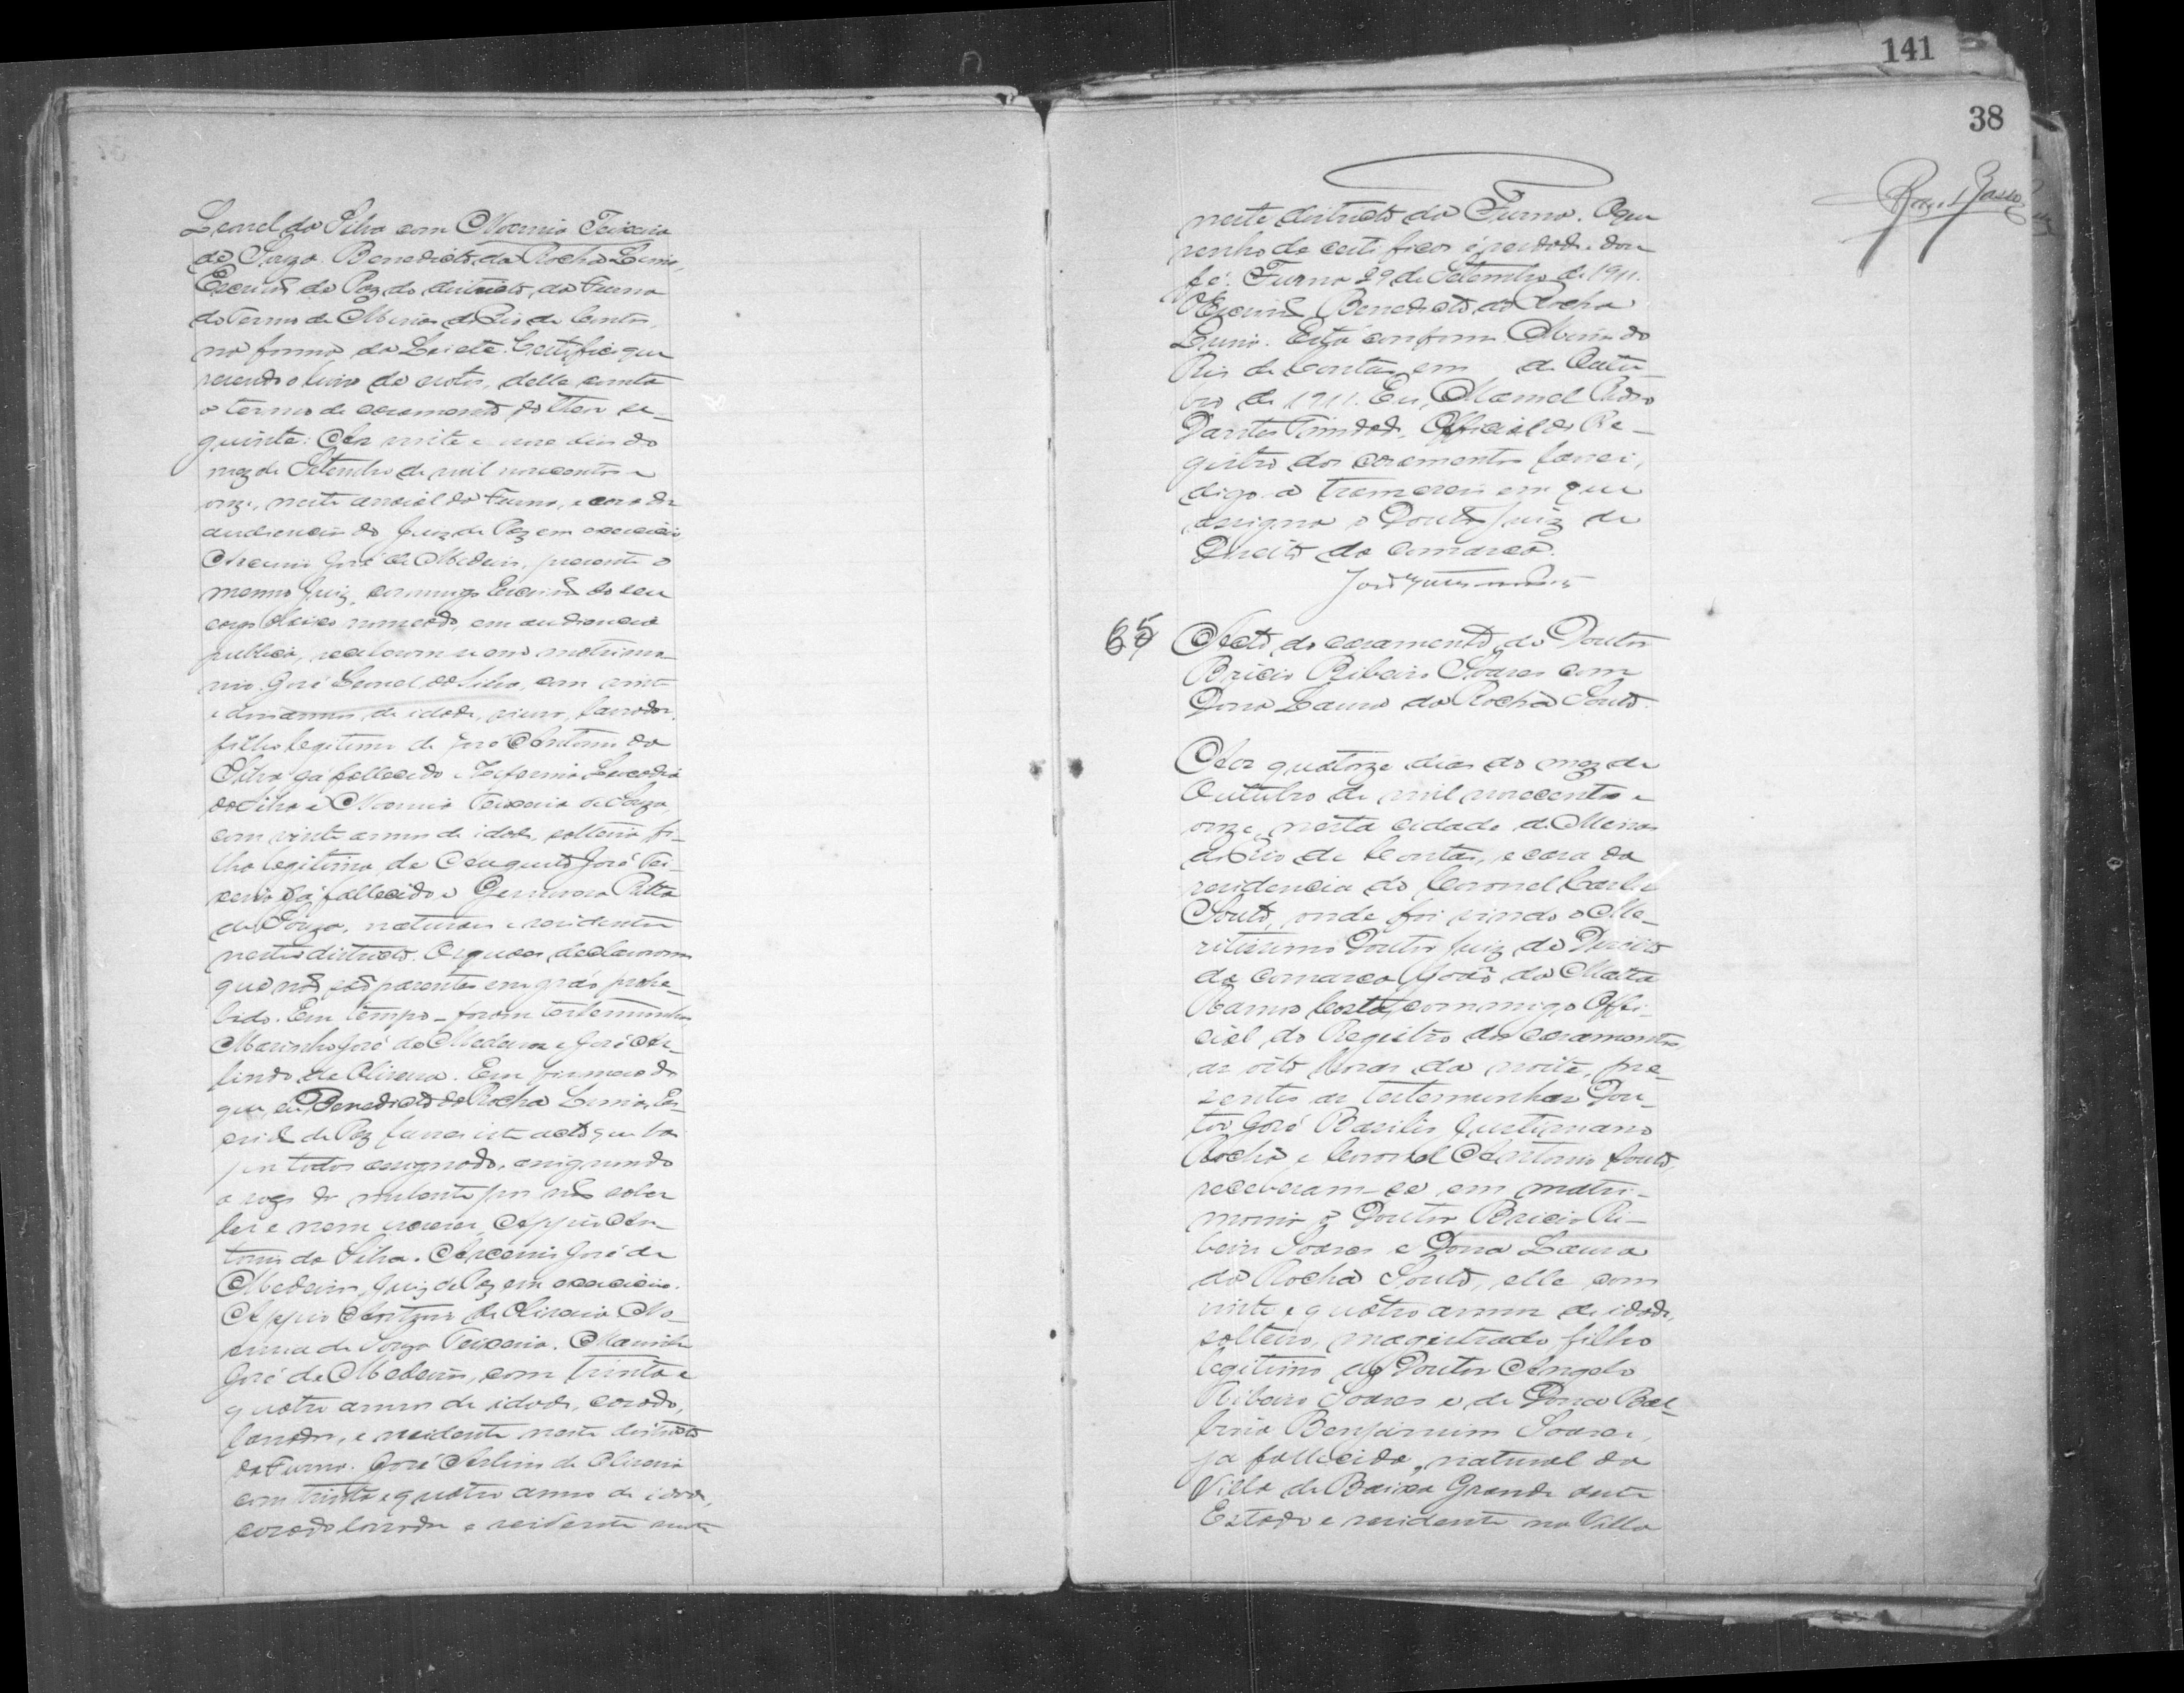 Leonel da Silva com Moemia Teixeira
de Souza. Benedicto da Rocha Lima,
Escrivão de Paz do districto da Furna
do Termo de Minas do Rio de Contas,
na forma da Lei etc. Certifico que
revendo o livro de notas, delle consta
o termo de casamento do theor se-
guinte: Aos vinte e nove dias do
mez de Setembro de mil novecentos e
onze, neste arraial da Furna, e casa da
audiencia do Juiz de Paz em exercicio
José de Medeiros, presente o
mesmo Juiz, commigo Escrivão do seu
cargo abaixo nomeado, em audiencia
publica, receberam-se em matrimo-
nio José Leonel da Silva, com vinte
e annos de idade, viuvo, lavrador,
filho legitimo de José Antonio da
Silva já fallecido e Leocadia
da Silva e Teixeira de Souza,
com vinte annos de idade, solteira fi-
lha legitima de Augusto José Tei-
xeira já fallecido e Generosa
de Souza, naturaes e residentes
neste districto. Os quaes declararam
que não são parentes em gráo prohi-
bido. Em tempo - foram testemunhas
Marinho José de Medeiros e José Ar-
lindo de Oliveira. Em firmeza do
que, eu Benedicto da Rocha Lima, Es-
crivão de Paz lavrei este acto que vai
por todos assignado, assignando
a rogo da nubente por não saber
ler e nem escrever, Appio An-
tonio da Silva. José de
Medeiros, Juiz de Paz em exercicio.
Appio de Oliveira
de Souza Teixeira. Marinho
José de Medeiros, com trinta e
quatro annos de idade, casado,
lavrador, e residente neste districto
da Furna. José Arlindo de Oliveira
com trinta e quatro annos de idade,
casado lavrador e residente neste
141
38
neste districto da Furna. O que
venho de certificar é verdade e dou
fé. Furna 29 de Setembro de 1911.
O Escrivão Benedicto da Rocha
Lima. Está conforme. Minas do
Rio de Contas, em de Outu-
bro de 1911. Eu, Manoel Pedro
Dantes Trindade, Official do Re-
gistro dos casamentos lavrei,
digo a transcrevi em que
assigna o Doutor Juiz de
Direito da comarca.
65
Acto do casamento do Doutor
Bricio Ribeiro Soares com
Dona Laura da Rocha Souto.
Aos quatorze dias do mez de
Outubro de mil novecentos e
onze, nesta cidade de Minas
do Rio de Contas, e casa da
residencia do Coronel Carlos
Souto, onde foi vindo o Me-
ritissimo Doutor Juiz de Direito
da comarca João da Matta
Ramos Costa, commigo Offi-
cial do Registro dos casamentos,
as oito horas da noite, pre-
sentes as testemunhas Dou-
tor José Basilio Justiniano
Rocha e Coronel Antonio Souto,
receberam-se em matri-
monio o Doutor Bricio Ri-
beiro Soares e Dona Laura
da Rocha Souto, elle com
vinte e quatro annos de idade,
solteiro, magistrado filho
legitimo do Doutor Angelo
Ribeiro Soares e de Dona Bal-
bina Benjamim Soares,
ja fallecida, natural da
Villa de Baixa Grande deste
Estado e residente na Villa